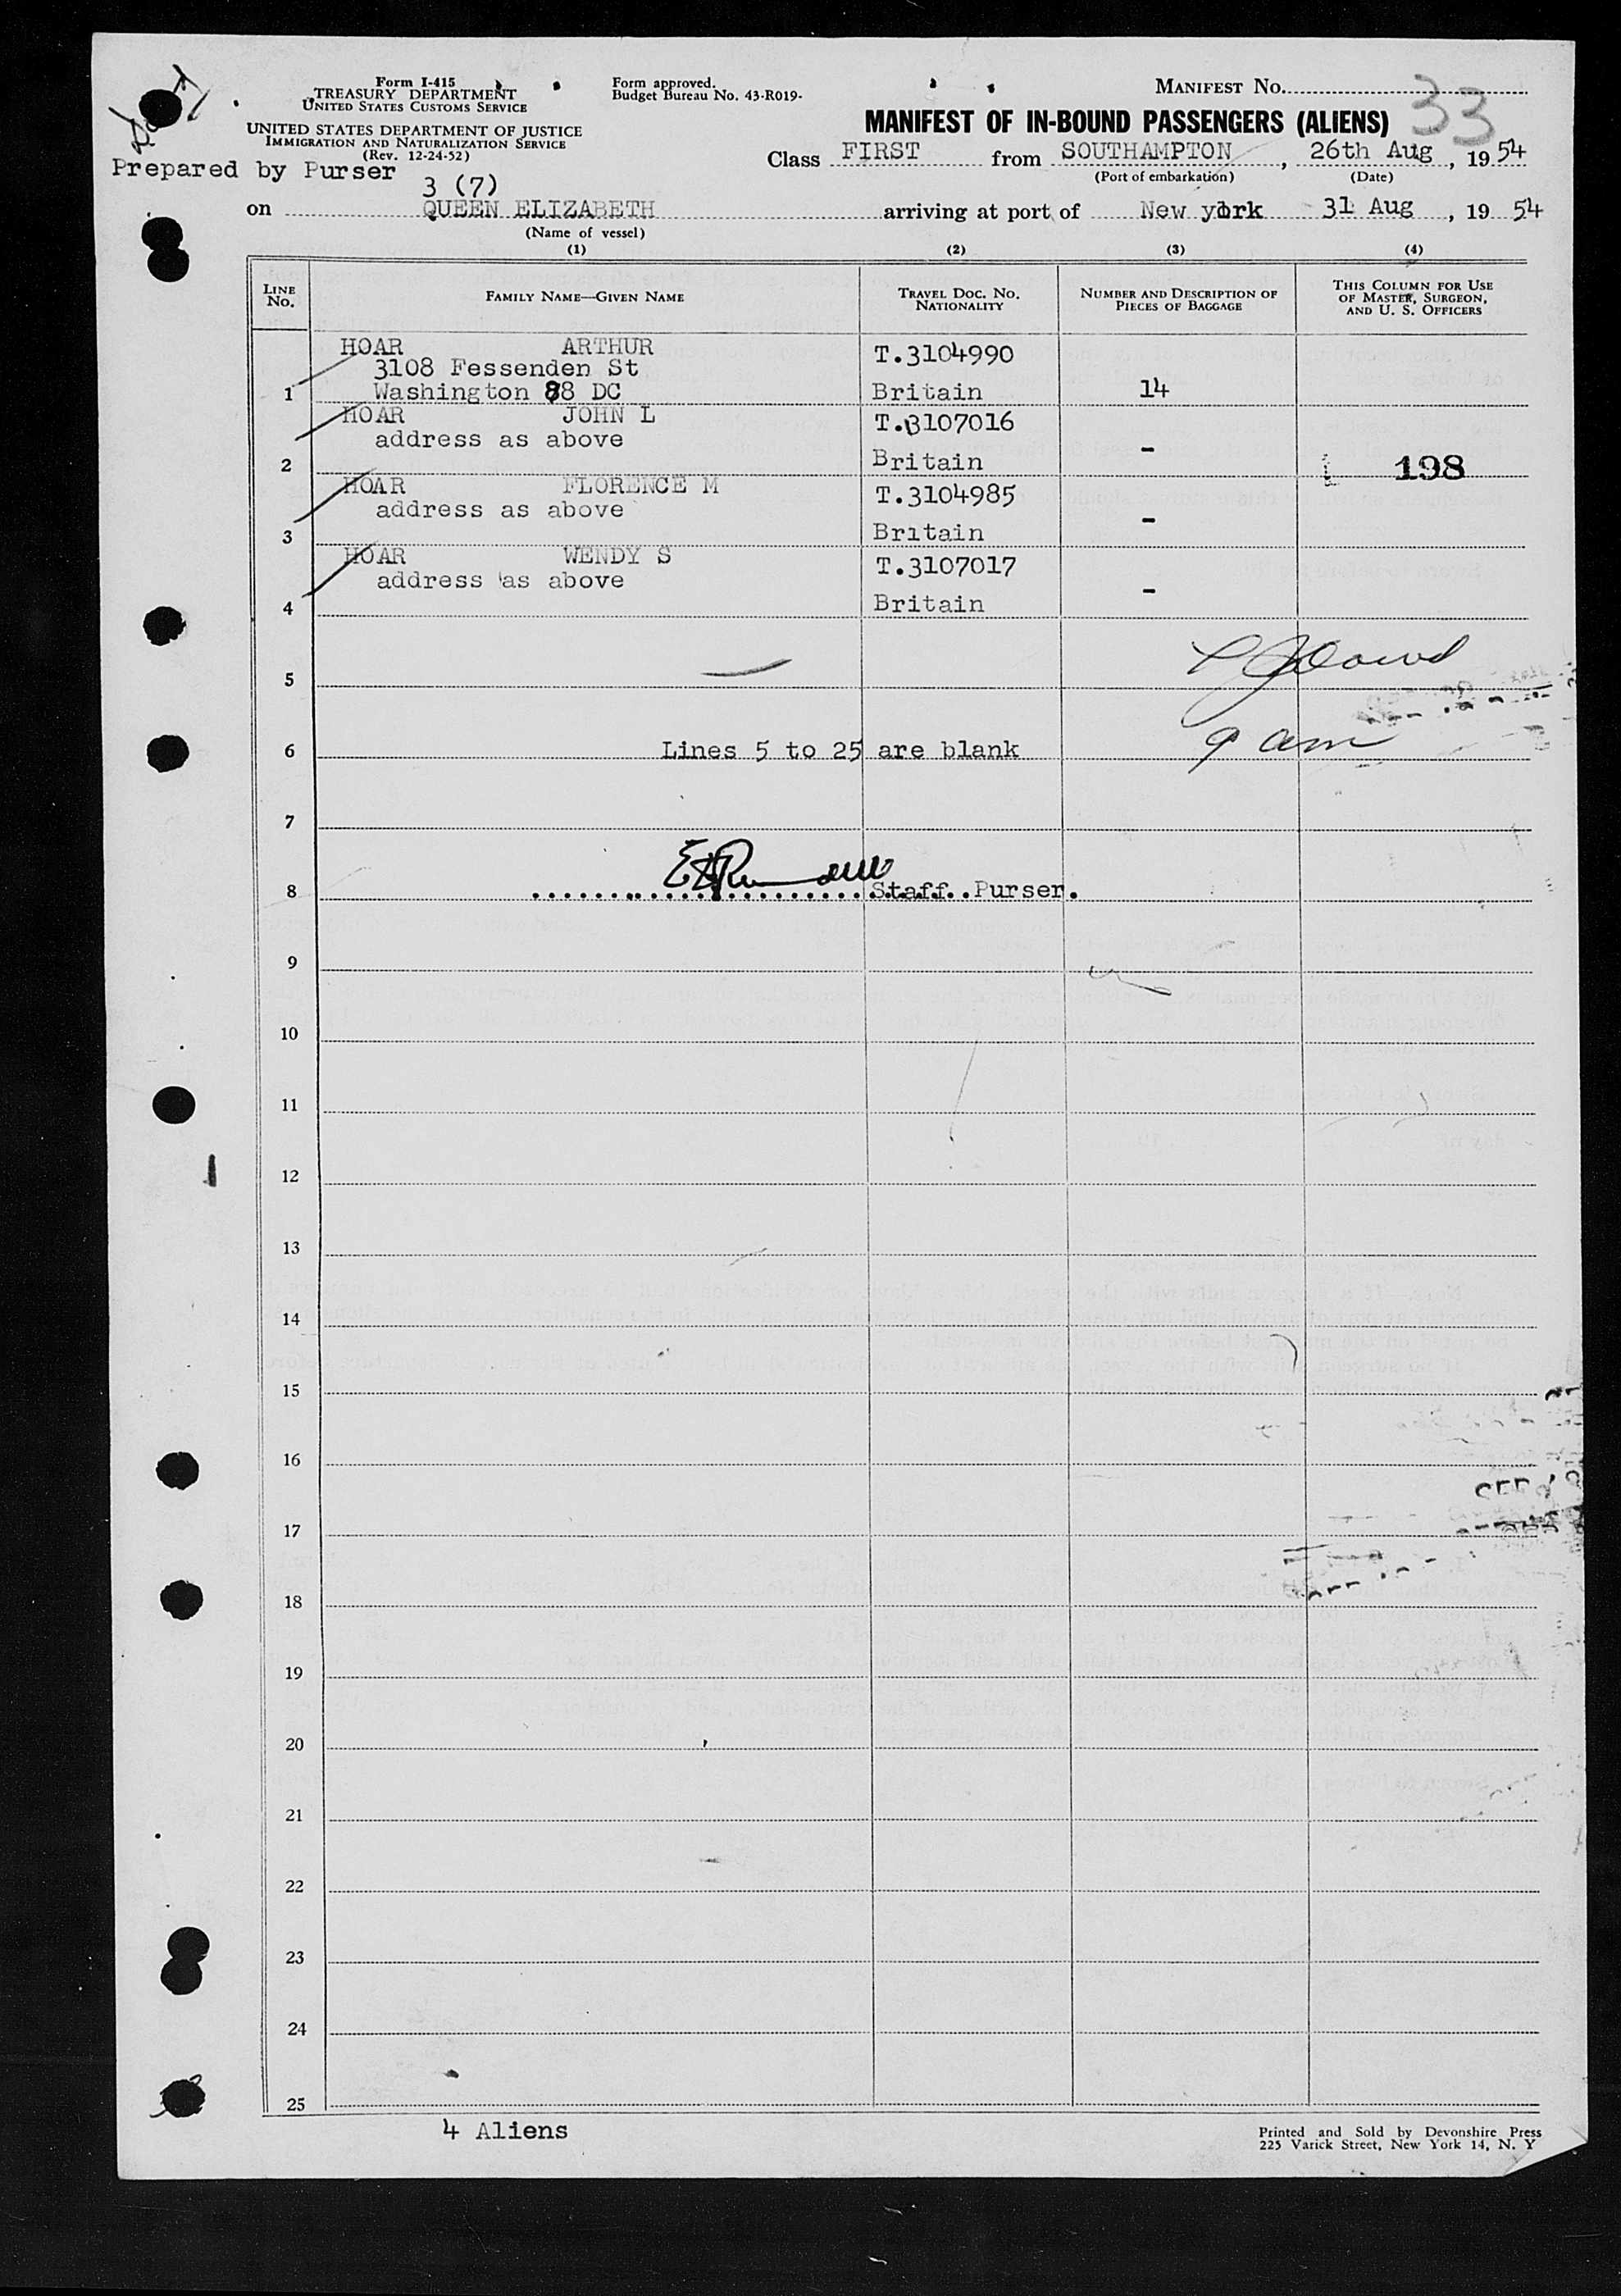 Form I-415
TREASURY DEPARTMENT
UNITED STATES CUSTOMS SERVICE
UNITED STATES DEPARTMENT OF JUSTICE
IMMIGRATION AND NATURALIZATION SERVICE
(Rev. 12-24-52)
Prepared by Purser
Form approved.
Budget Bureau No. 43-R019-
MANIFEST No. 33
MANIFEST OF IN-BOUND PASSENGERS (ALIENS)
Class FIRST from SOUTHAMPTON, 26th Aug, 19 54
(Port of embarkation) (Date)
3 (7)
on QUEEN ELIZABETH arriving at port of New york 31 Aug, 19 54
(Name of vessel)
(1) (2) (3) (4)
LINE No. FAMILY NAME—GIVEN NAME TRAVEL DOC. No. NATIONALITY NUMBER AND DESCRIPTION OF PIECES OF BAGGAGE THIS COLUMN FOR USE OF MASTER, SURGEON, AND U. S. OFFICERS
HOAR ARTHUR T.3104990
3108 Fessenden St
1 Washington 88 DC Britain 14
HOAR JOHN L T.3107016
address as above -
2 Britain 198
HOAR FLORENCE M T.3104985
address as above -
3 Britain
HOAR WENDY S T.3107017
address as above -
4 Britain
5
6 Lines 5 to 25 are blank 9 am
7
8 Staff Purser.
9
10
11
12
13
14
15
16
17
18
19
20
21
22
23
24
25
4 Aliens
Printed and Sold by Devonshire Press
225 Varick Street, New York 14, N. Y